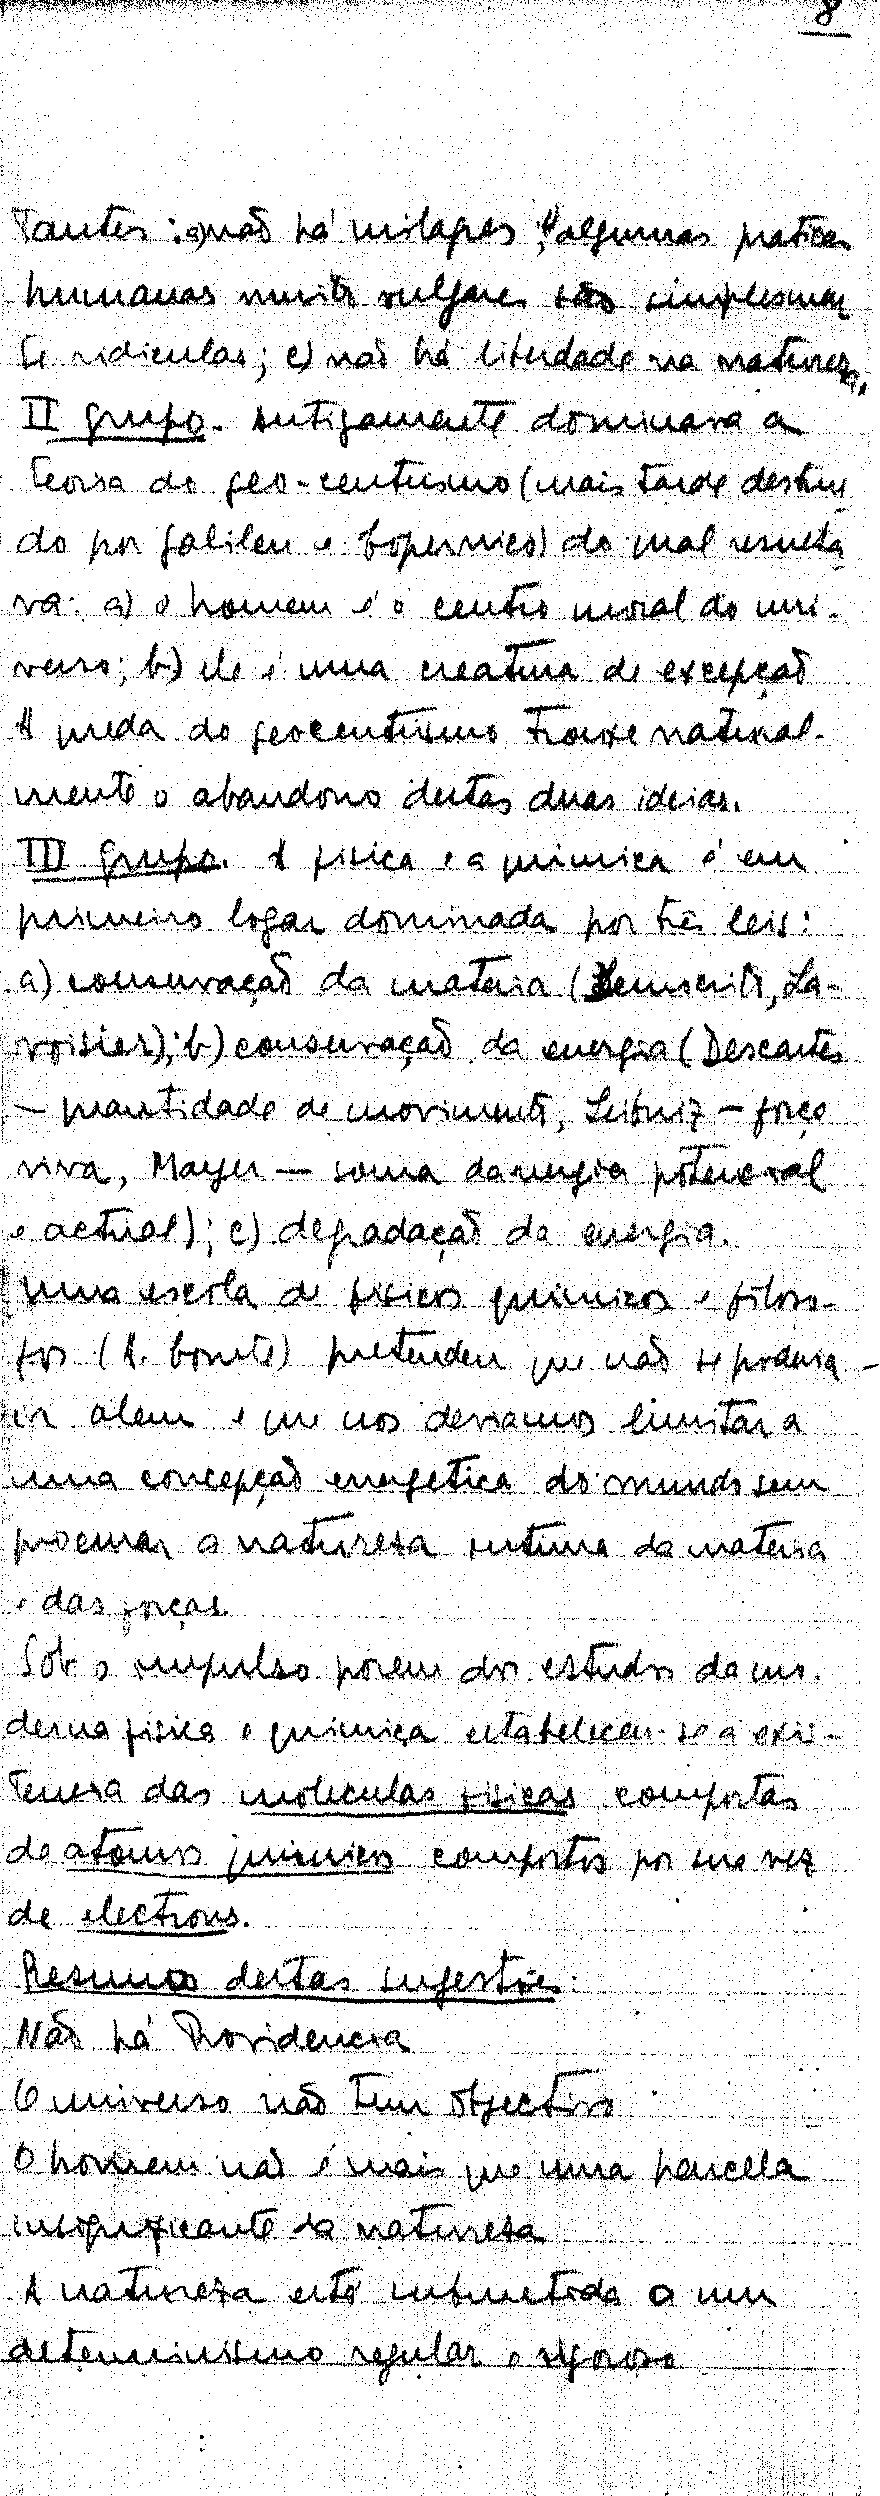 8
tantes: a) não há milagres; b) algumas praticas
humanas muito vulgares são simplesmen
te ridiculas; c) não há liberdade na natureza.
II grupo. Antigamente dominava a
teoria do geo-centrismo (mais tarde destrui
do por Galileu e Copernico) do qual resulta
va: a) o homem é o centro moral do uni-
verso; b) ele é uma creatura de excepção
A queda do geocentrismo trouxe natural-
mente o abandono destas duas ideias.
III grupo. A fisica e a quimica é em
primeiro logar dominada por três leis:
a) conservação da materia (Democrito, La-
voisier); b) conservação da energia (Descartes
— quantidade de movimento, Leibniz — força
viva, Mayer — soma da energia potencial
e actual); c) degradação da energia.
Uma escola de fisicos quimicos e filoso-
fos (A. Comte) pretendeu que não se poderia
ir alem e que nos deviamos limitar a
uma concepção energetica do mundo sem
procurar a natureza intima da materia
e das forças.
Sob o impulso porem dos estudos da mo-
derna fisica e quimica estabeleceu-se a exis-
tencia das moleculas fisicas compostas
de atomos quimicos compostos por sua vez
de electrons.
Resumo destas sugestões:
Não há Providencia
O universo não tem objectivo
O homem não é mais que uma parcella
insignificante da natureza
A natureza está submetida a um
determinismo regular e rigoroso